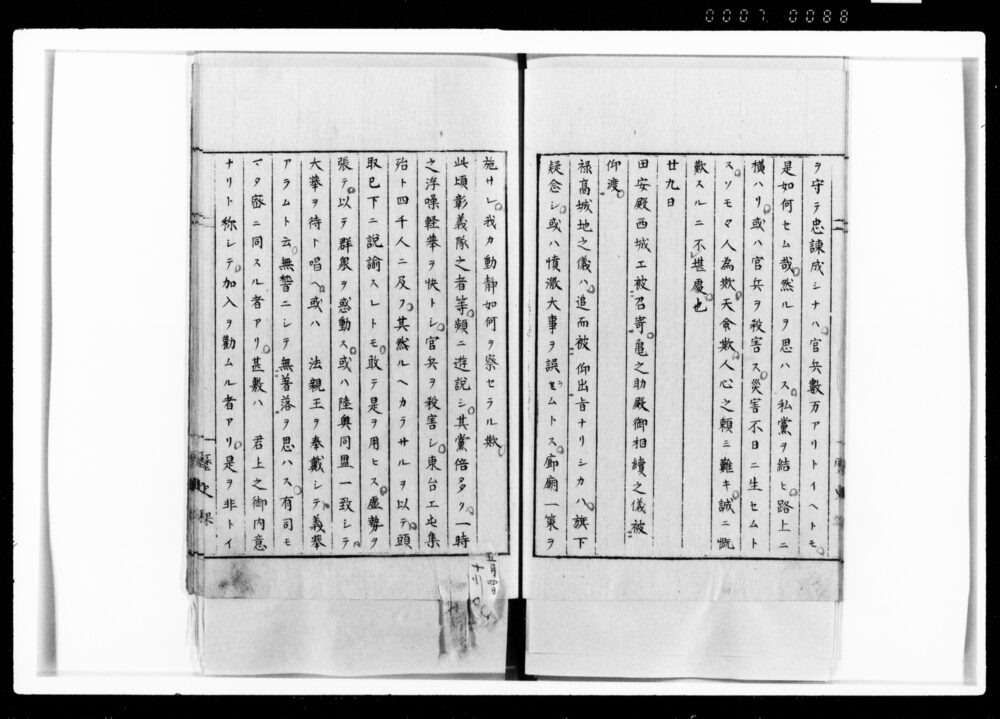 0007. 0088
ヲ守テ忠諌成シナハ官兵數万アリトイヘトモ
是如何セム哉然ルヲ思ハス私黨ヲ結ヒ路上ニ
横ハリ或ハ官兵ヲ殺害ス災害不日ニ生セムト
スソモマ人為歟天命歟人心之頼ミ難キ誠ニ慨
歎スルニ不堪處也
廿九日
田安殿西城エ被召寄亀之助殿御相續之儀被
仰渡
禄高城地之儀ハ追而被 仰出旨ナリシカハ旗下
疑念シ或ハ憤激大事ヲ誤ラムトス廊廟一策ヲ
施サレ我カ動静如何ヲ察セラル歟
此頃彰義隊之者等頻ニ遊説シ其黨倍多ク一時
之浮噪軽挙ヲ快トシ官兵ヲ殺害シ東台エ屯集
殆ト四千人ニ及フ其然ルヘカラサルヲ以テ頭
取已下ニ説諭スレトモ敢テ是ヲ用ヒス虚勢ヲ
張テ以テ群衆ヲ惑動ス或ハ陸奥同盟一致シテ
大挙ヲ待ト唱ヘ或ハ 法親王ヲ奉戴シテ義挙
アラムト云無謀ニシテ無著落ヲ思ハス有司モ
マタ密ニ同スル者アリ甚敷ハ 君上之御内意
ナリト称シテ加入ヲ勸ムル者アリ是ヲ非トイ
歴史課
五月